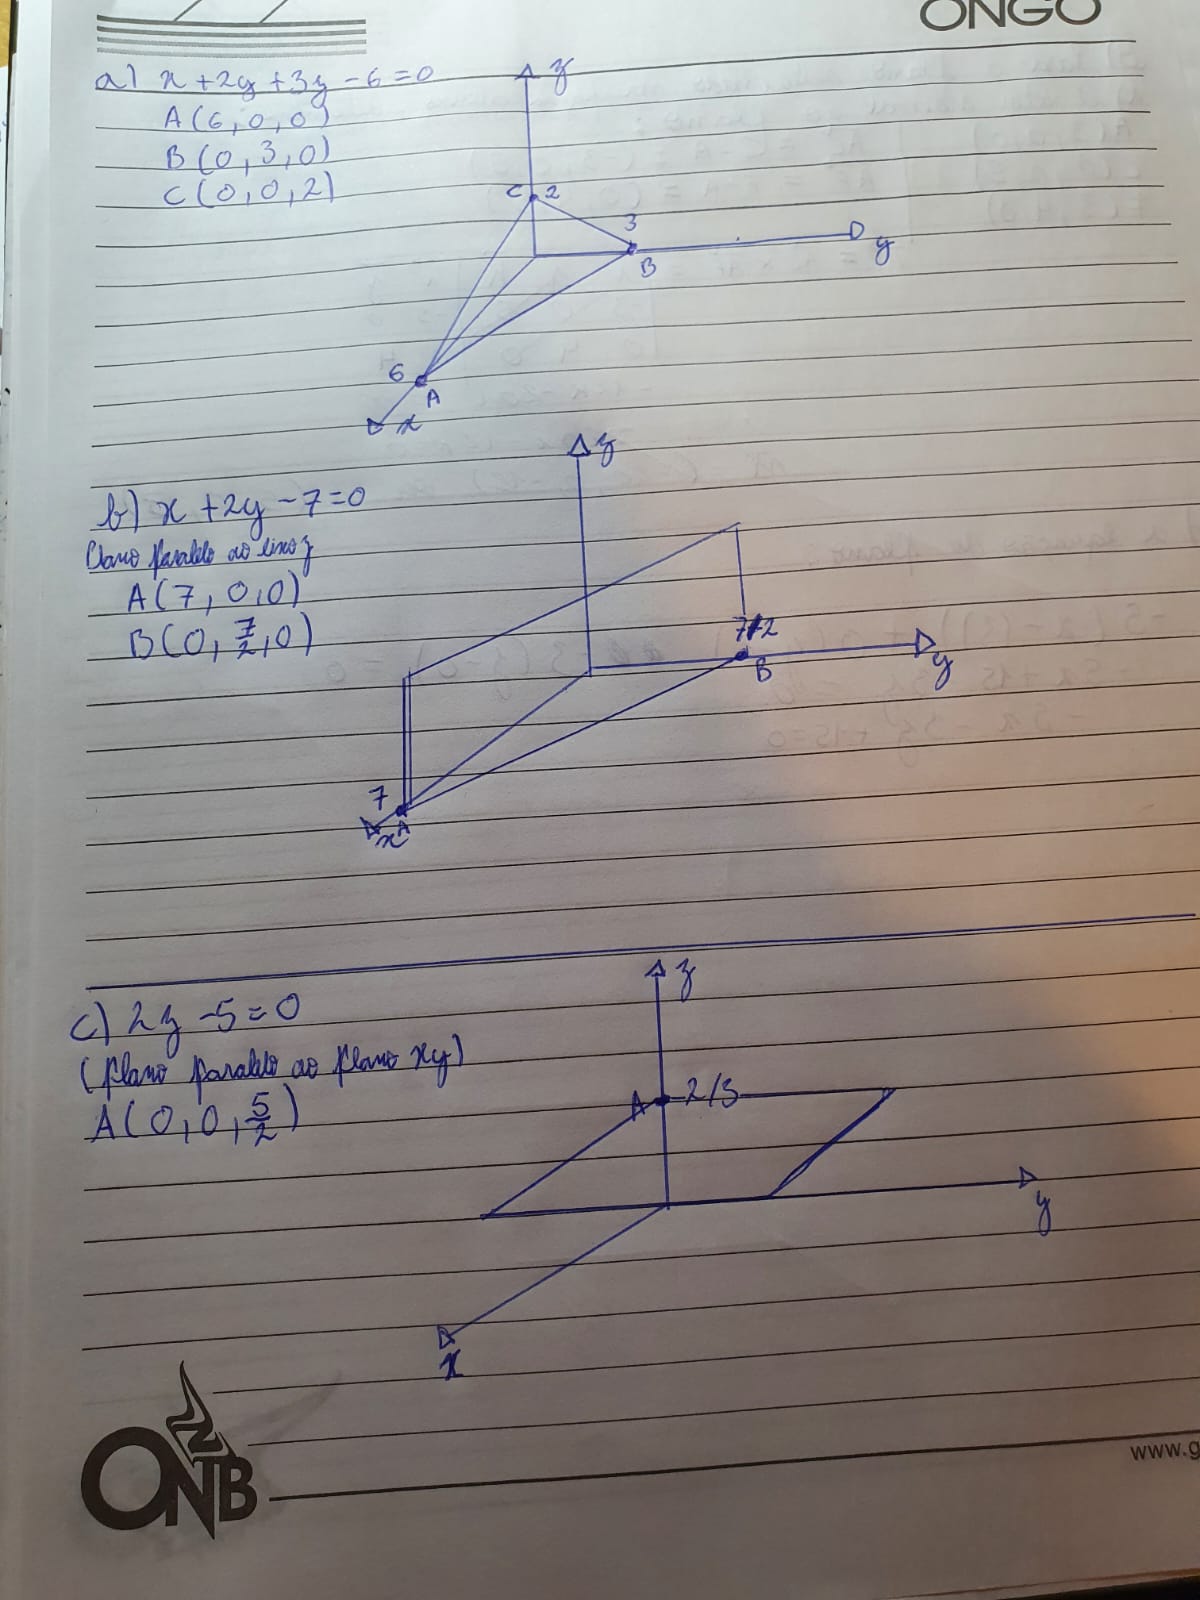 ONGO
a) x + 2y + 3z - 6 = 0
A(6, 0, 0)
B(0, 3, 0)
C(0, 0, 2)
z
C 2
3
B
y
6
A
x
b) x + 2y - 7 = 0
Plano paralelo ao eixo z
A(7, 0, 0)
B(0, 7/2, 0)
z
7/2
B
y
7
A
x
c) 2z - 5 = 0
(plano paralelo ao plano xy)
A(0, 0, 5/2)
z
A 2/5
y
x
ONB
www.g